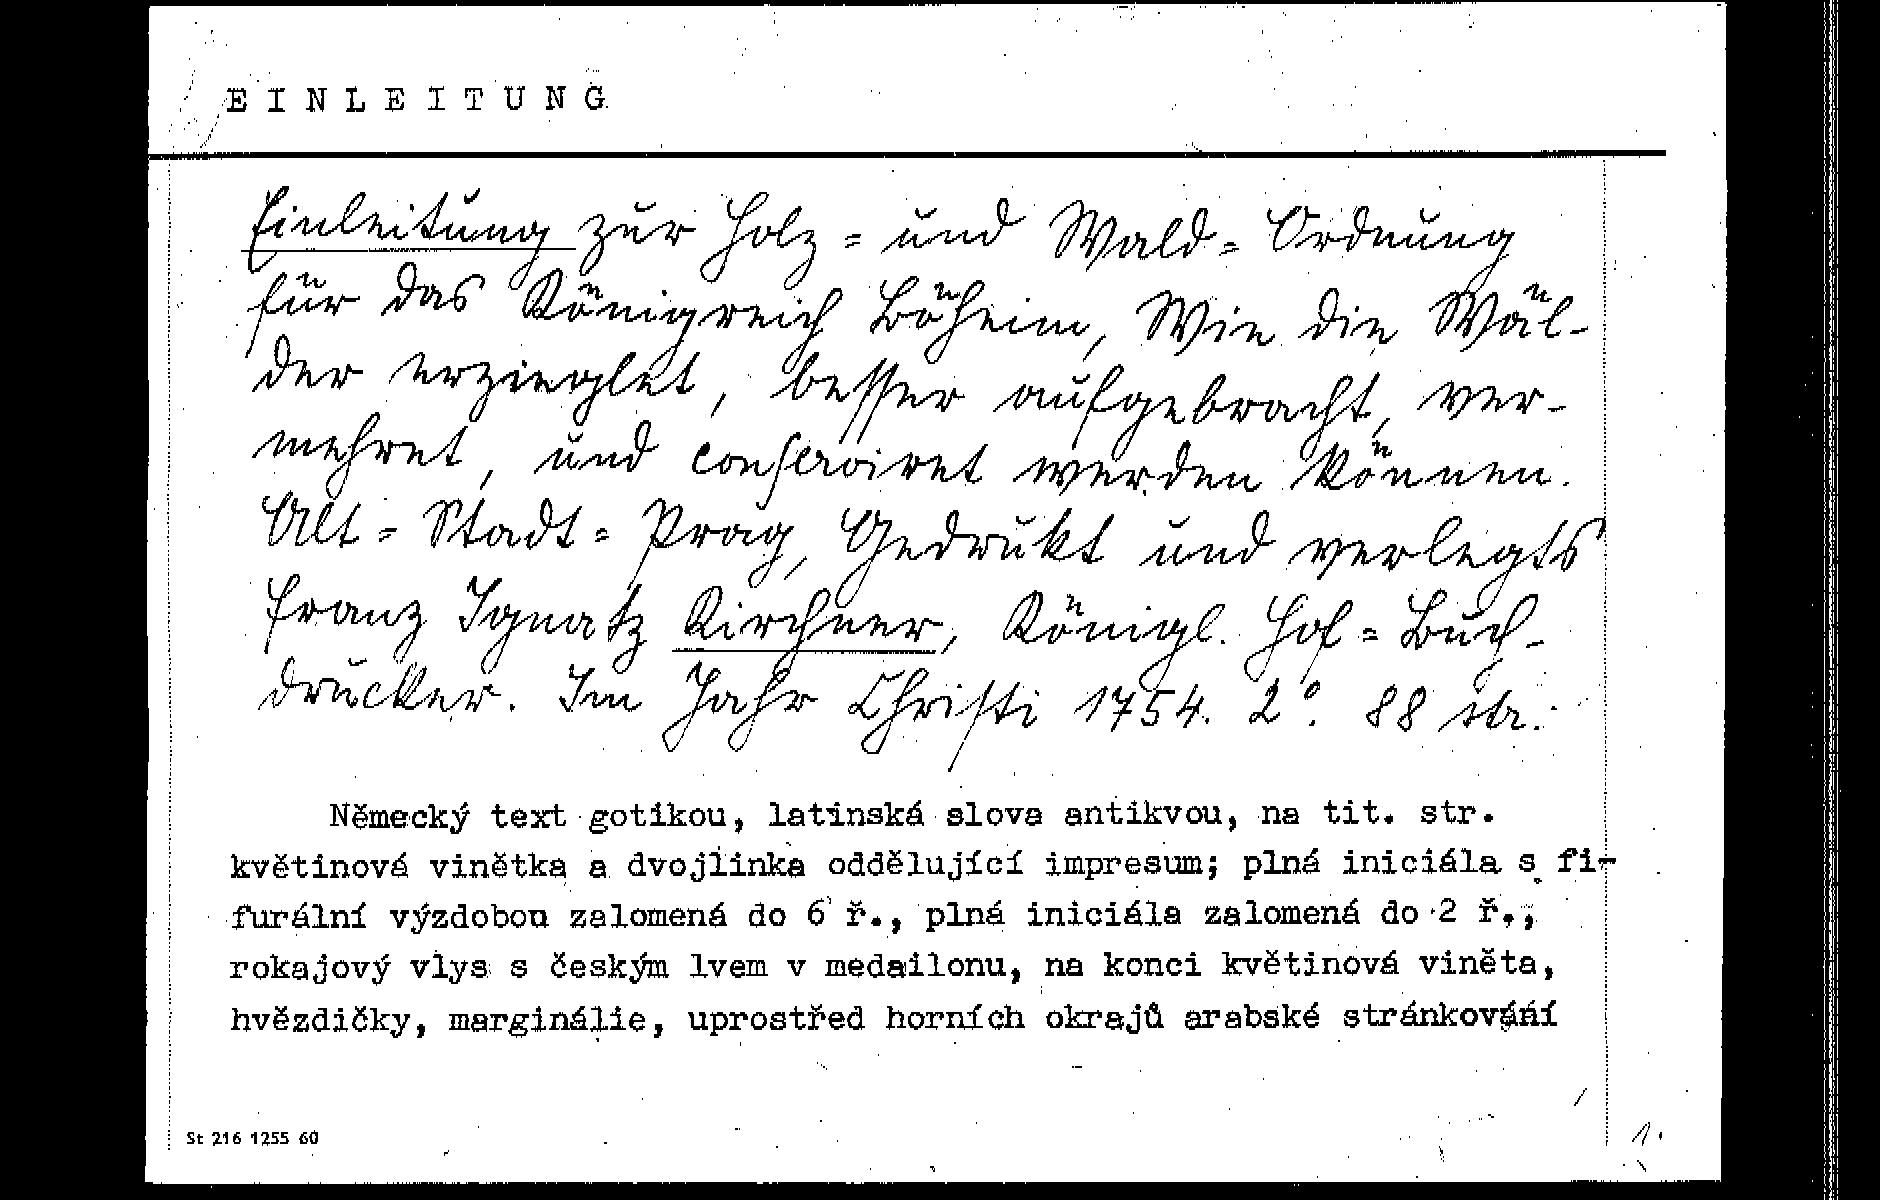 EINLEITUNG
Einleitung zur Holz= und Wald= Ordnung
für das Königreich Böheim, Wie die Wäl-
der erzieglet, besser aufgebracht, ver-
mehret, und conserviret werden können.
Alt= Stadt= Prag, Gedrukt und verlegts
Franz Ignatz Kirchner, Königl. Hof= Buch-
drucker. Im Jahr Christi 1754. 2°. 88 str.
Německý text gotikou, latinská slova antikvou, na tit. str.
květinová vinětka a dvojlinka oddělující impresum; plná iniciála s fi-
furální výzdobou zalomená do 6 ř., plná iniciála zalomená do 2 ř.,
rokajový vlys s českým lvem v medailonu, na konci květinová viněta,
hvězdičky, marginálie, uprostřed horních okrajů arabské stránkování
St 216 1255 60
1.